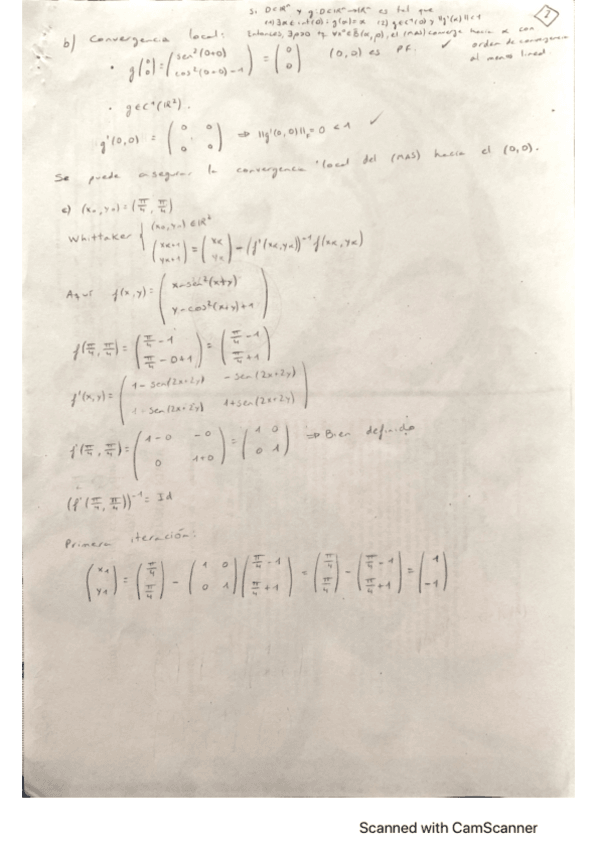 Si D⊂ℝⁿ y g:D⊂ℝⁿ→ℝⁿ es tal que
(1) ∃α∈int(D): g(α)=α (2) g∈C¹(D) y ||g'(α)||<1
Entonces, ∃ρ>0 tq ∀x⁰∈B(α,ρ), el (MAS) converge hacia α con
orden de convergencia
al menos lineal
2
b) Convergencia local:
• g(0 0) = (sen²(0+0) cos²(0+0)-1) = (0 0) (0,0) es PF. ✓
• g∈C¹(ℝ²).
g'(0,0) = (0 0 0 0) ⇒ ||g'(0,0)|| = 0 < 1 ✓
Se puede asegurar la convergencia local del (MAS) hacia el (0,0).
c) (x₀,y₀)=(π/4, π/4)
Whittaker { (x₀,y₀)∈ℝ²
(xₖ₊₁ yₖ₊₁) = (xₖ yₖ) - (f'(x₀,y₀))⁻¹ f(xₖ,yₖ)
Aquí f(x,y) = (x-sen²(x+y) y-cos²(x+y)+1)
f(π/4, π/4) = (π/4 -1 π/4 -0+1) = (π/4 -1 π/4 +1)
f'(x,y) = (1-sen(2x+2y) -sen(2x+2y) sen(2x+2y) 1+sen(2x+2y))
f'(π/4, π/4) = (1-0 -0 0 1+0) = (1 0 0 1) ⇒ Bien definido
(f'(π/4, π/4))⁻¹ = Id
Primera iteración:
(x₁ y₁) = (π/4 π/4) - (1 0 0 1)(π/4 -1 π/4 +1) = (π/4 π/4) - (π/4 -1 π/4 +1) = (1 -1)
Scanned with CamScanner